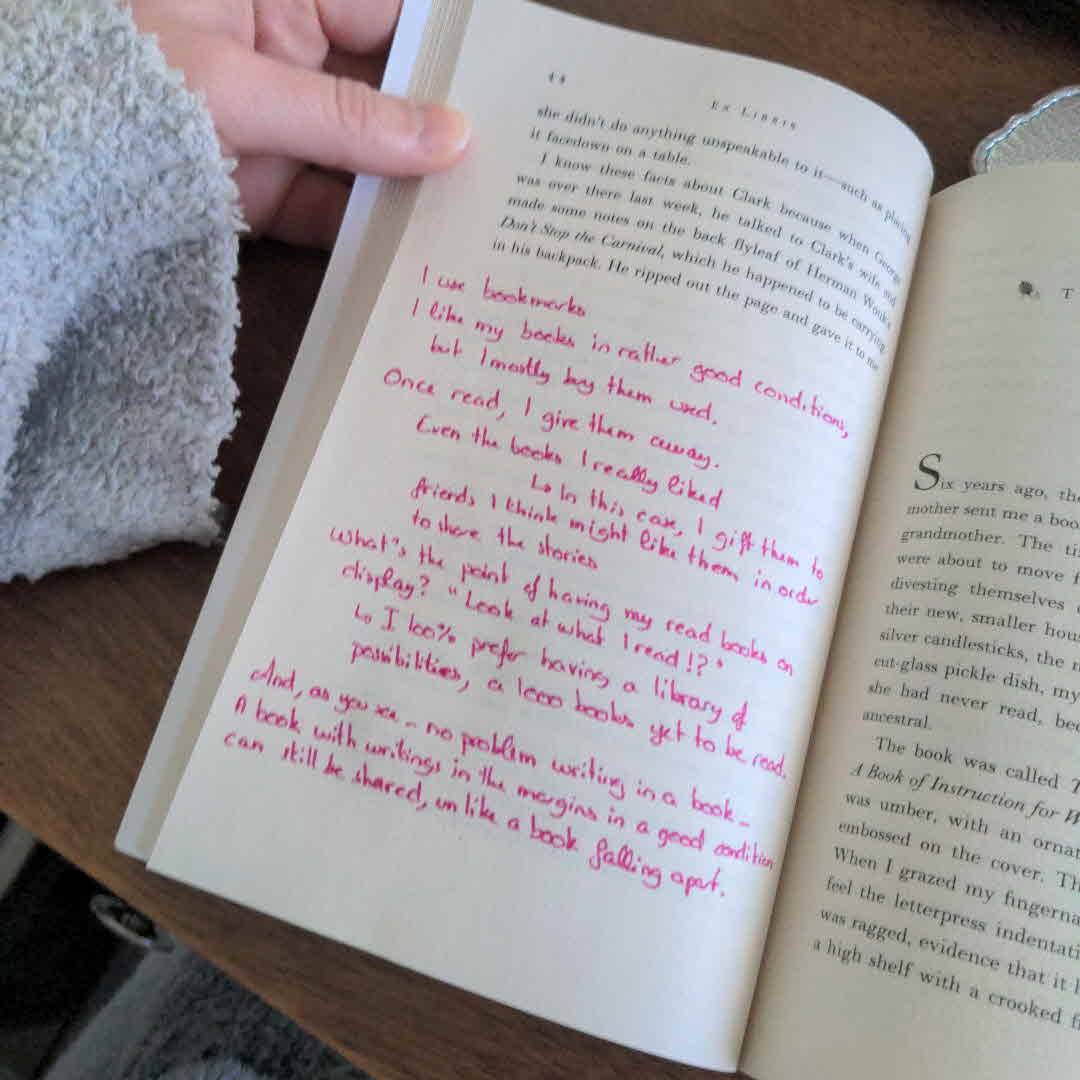 44
EX LIBRIS
she didn't do anything unspeakable to it—such as placing
it facedown on a table.
I know these facts about Clark because when George
was over there last week, he talked to Clark's wife and
made some notes on the back flyleaf of Herman Wouk's
Don't Stop the Carnival, which he happened to be carrying
in his backpack. He ripped out the page and gave it to me
I use bookmarks
I like my books in rather good conditions,
but I mostly buy them used.
Once read, I give them away.
Even the books I really liked
↳ In this case, I gift them to
friends I think might like them in order
to share the stories
What's the point of having my read books on
display? "Look at what I read!?"
↳ I 100% prefer having a library of
possibilities, a 1000 books yet to be read.
And, as you see - no problem writing in a book -
A book with writings in the margins in a good condition
can still be shared, unlike a book falling apart.
T
Six years ago, the
mother sent me a boo
grandmother. The tit
were about to move f
divesting themselves
their new, smaller hous
silver candlesticks, the r
cut-glass pickle dish, my
she had never read, bec
ancestral.
The book was called T
A Book of Instruction for W
was umber, with an ornar
embossed on the cover. Th
When I grazed my fingerna
feel the letterpress indentati
was ragged, evidence that it h
a high shelf with a crooked f